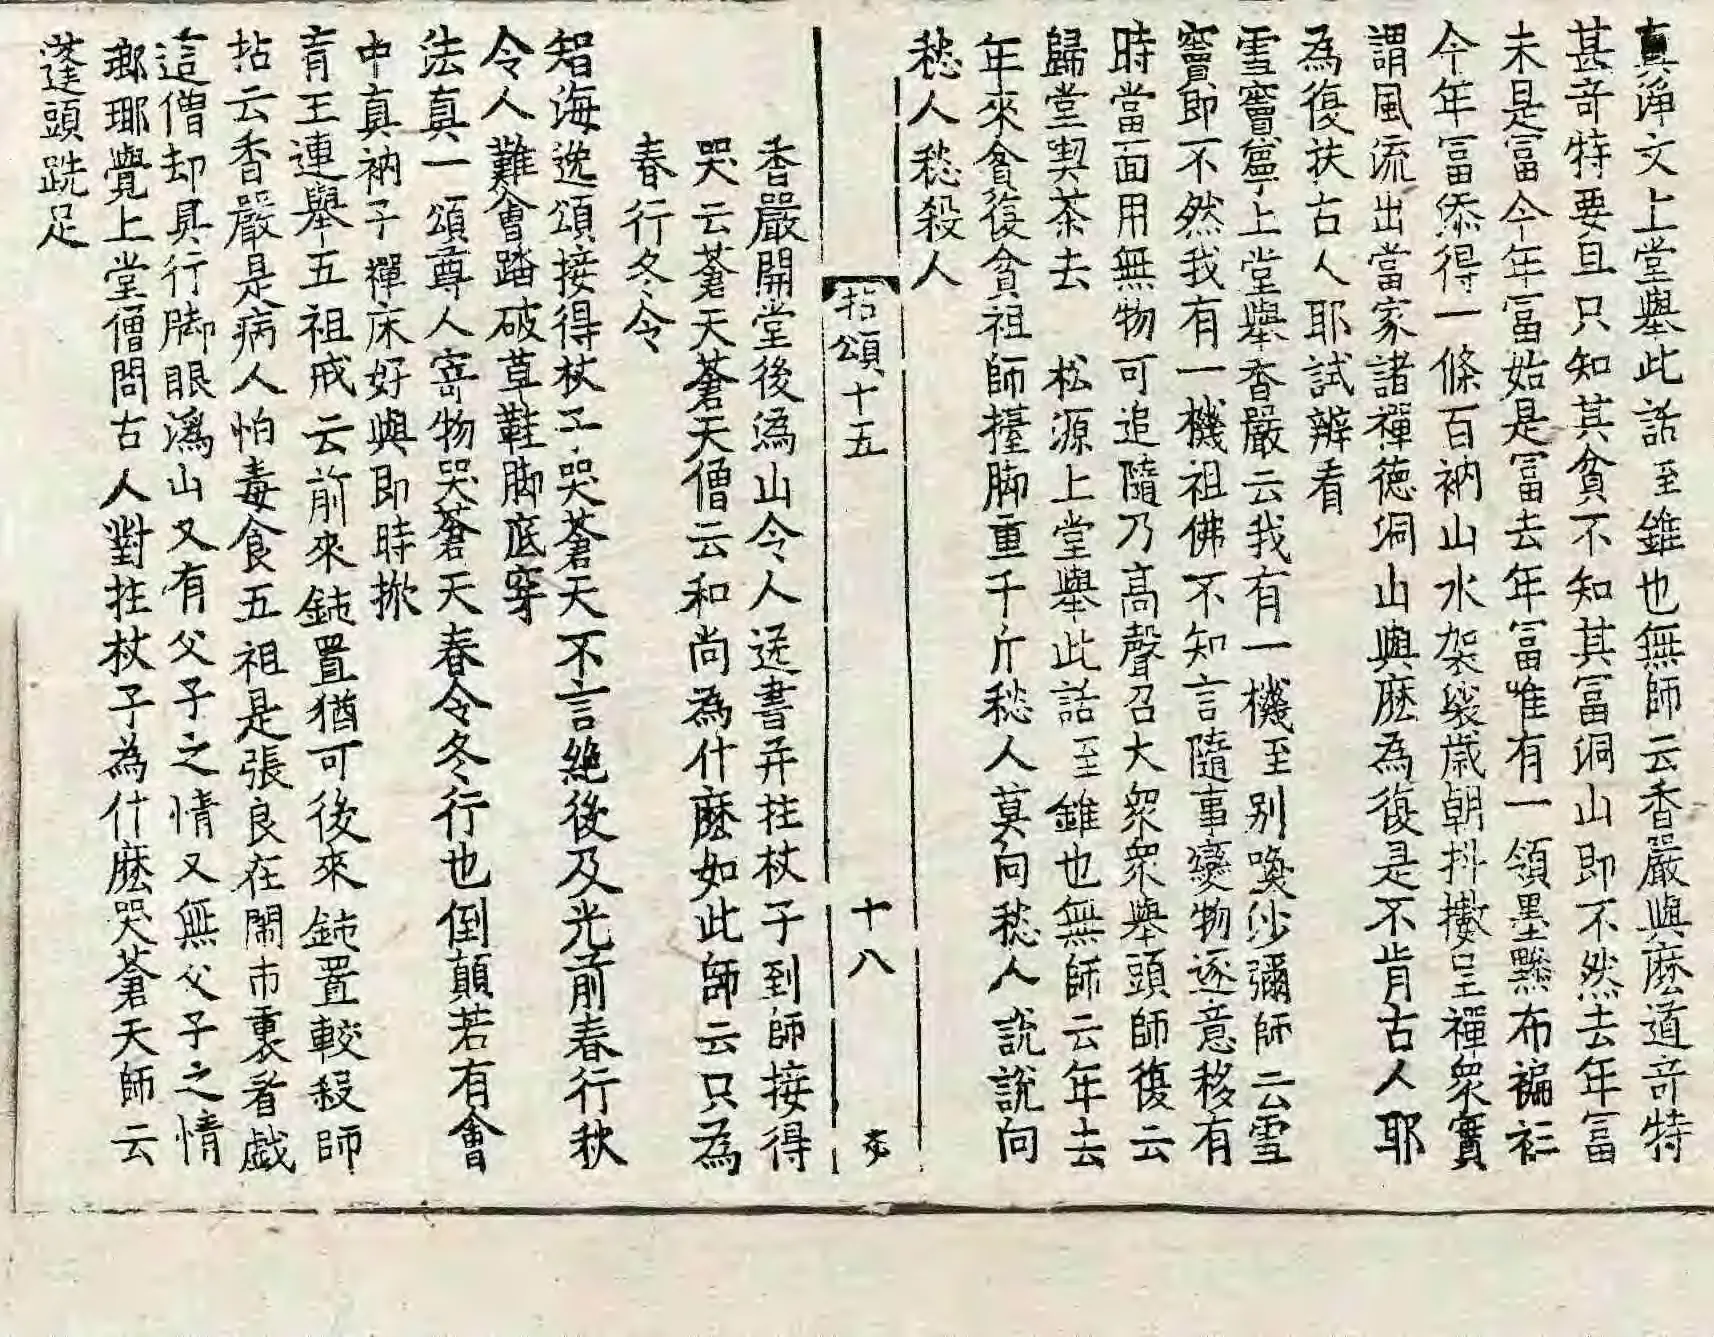 真淨文上堂舉此話至錐也無師云香嚴與麽道竒特
甚竒特要且只知其貧不知其冨洞山即不然去年冨
未是冨今年冨始是冨去年冨唯有一領墨黲布褊衫
今年冨添得一條百衲山水袈裟歳朝抖擻呈禪衆實
謂風流出當家諸禪德洞山與麽為復是不肯古人耶
為復扶古人耶試辨看
雪竇寧上堂舉香嚴云我有一機至别喚沙彌師云雪
竇即不然我有一機祖佛不知言隨事變物逐意移有
時當面用無物可追隨乃高聲召大衆衆舉頭師復云
歸堂喫茶去　松源上堂舉此話至錐也無師云年去
年來貧復貧祖師擡脚重千斤愁人莫向愁人說說向
愁人愁殺人
拈頌十五　十八
香嚴開堂後潙山令人送書幷拄杖子到師接得
哭云蒼天蒼天僧云和尚為什麽如此師云只為
春行冬令
智海逸頌接得杖子哭蒼天不言絶後及光前春行秋
令人難會踏破草鞋脚底穿
法真一頌尊人寄物哭蒼天春令冬行也倒顛若有會
中真衲子禪床好與即時掀
育王連舉五祖戒云前來鈍置猶可後來鈍置較殺師
拈云香嚴是病人怕毒食五祖是張良在閙市裏看戯
這僧却具行脚眼潙山又有父子之情又無父子之情
瑯瑘覺上堂僧問古人對拄杖子為什麽哭蒼天師云
蓬頭跣足